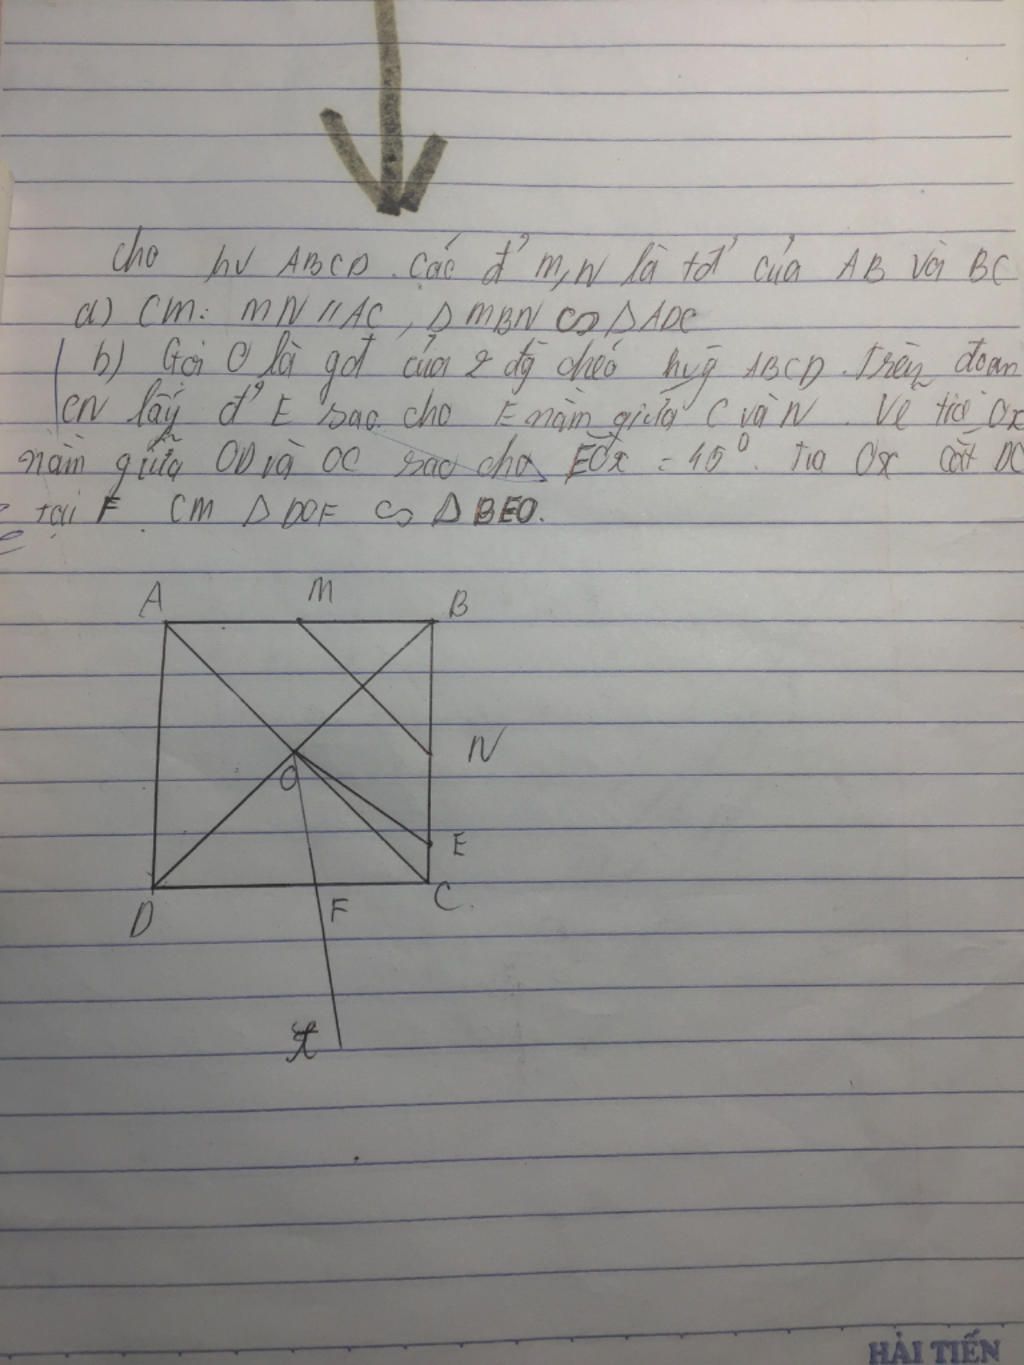 cho hv ABCD. Các đ' M, N là tđ' của AB và BC
a) CM: MN // AC, Δ MBN ∽ Δ ADC
b) Gọi O là gđ của 2 đg chéo hvg ABCD. Trên đoạn
CN lấy đ' E sao cho E nằm giữa C và N. Vẽ tia Ox
nằm giữa OD và OC sao cho EÔx = 45⁰. Tia Ox cắt DC
tại F. CM Δ DOF ∽ Δ BEO.
A M B
N
O
E
D F C
x
HẢI TIẾN